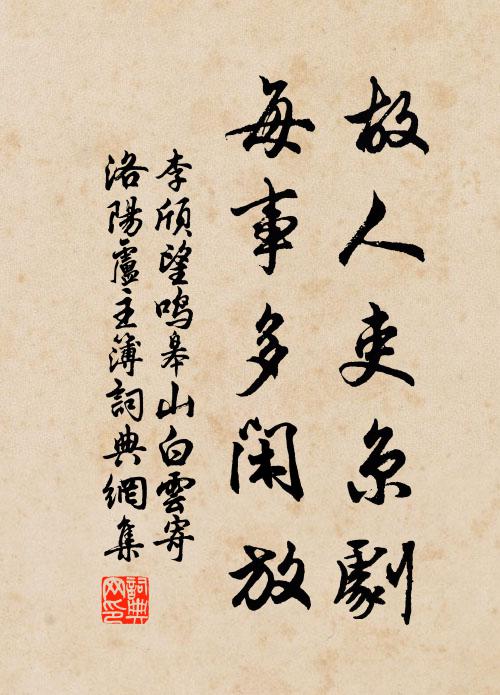 故人吏京劇
每事多閑放
李頎望鳴皋山白雲寄
洛陽盧主簿詞典網集
詞典
网印